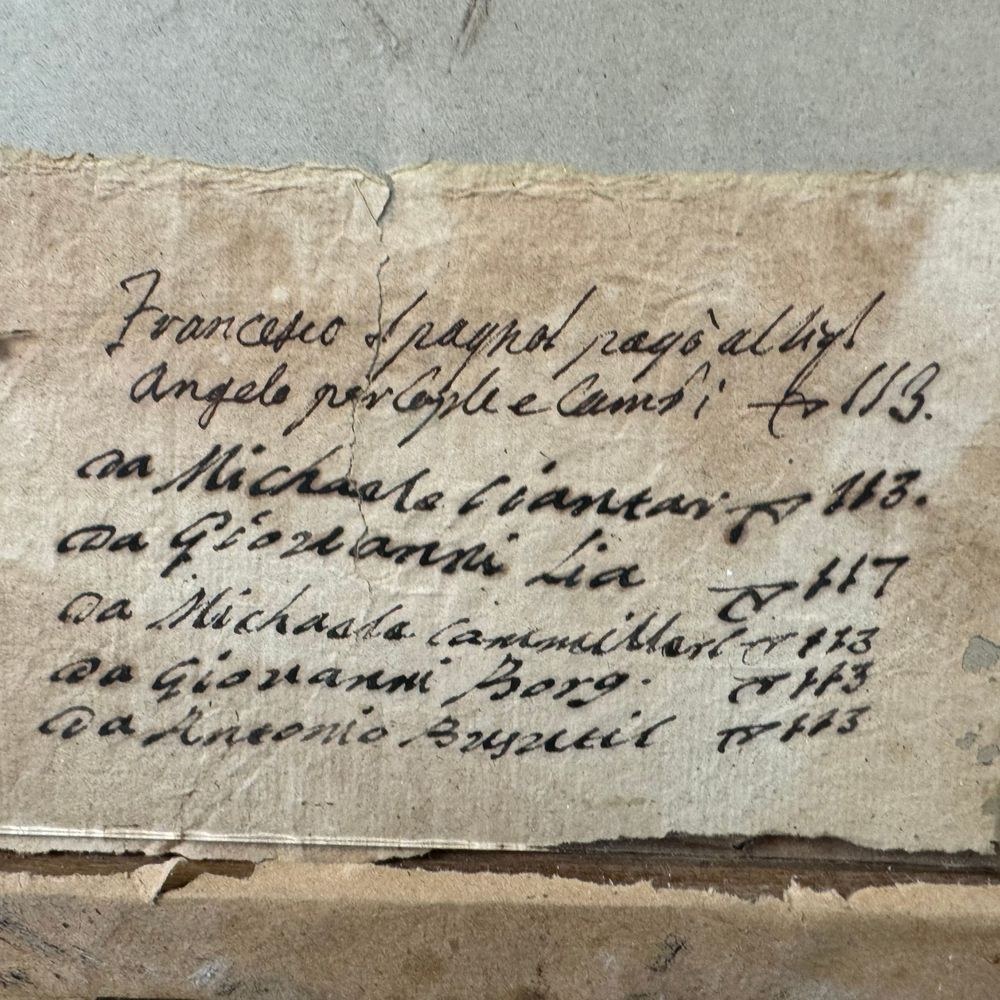 Francesco Spagnol pagò al Sigl
Angelo per Cople e Cambi 113.
da Michaele Ciantar 113.
da Giovanni Lia 117
da Michaele Cammilleri 113
da Giovanni Borg. 113
da Antonio Busutil 113